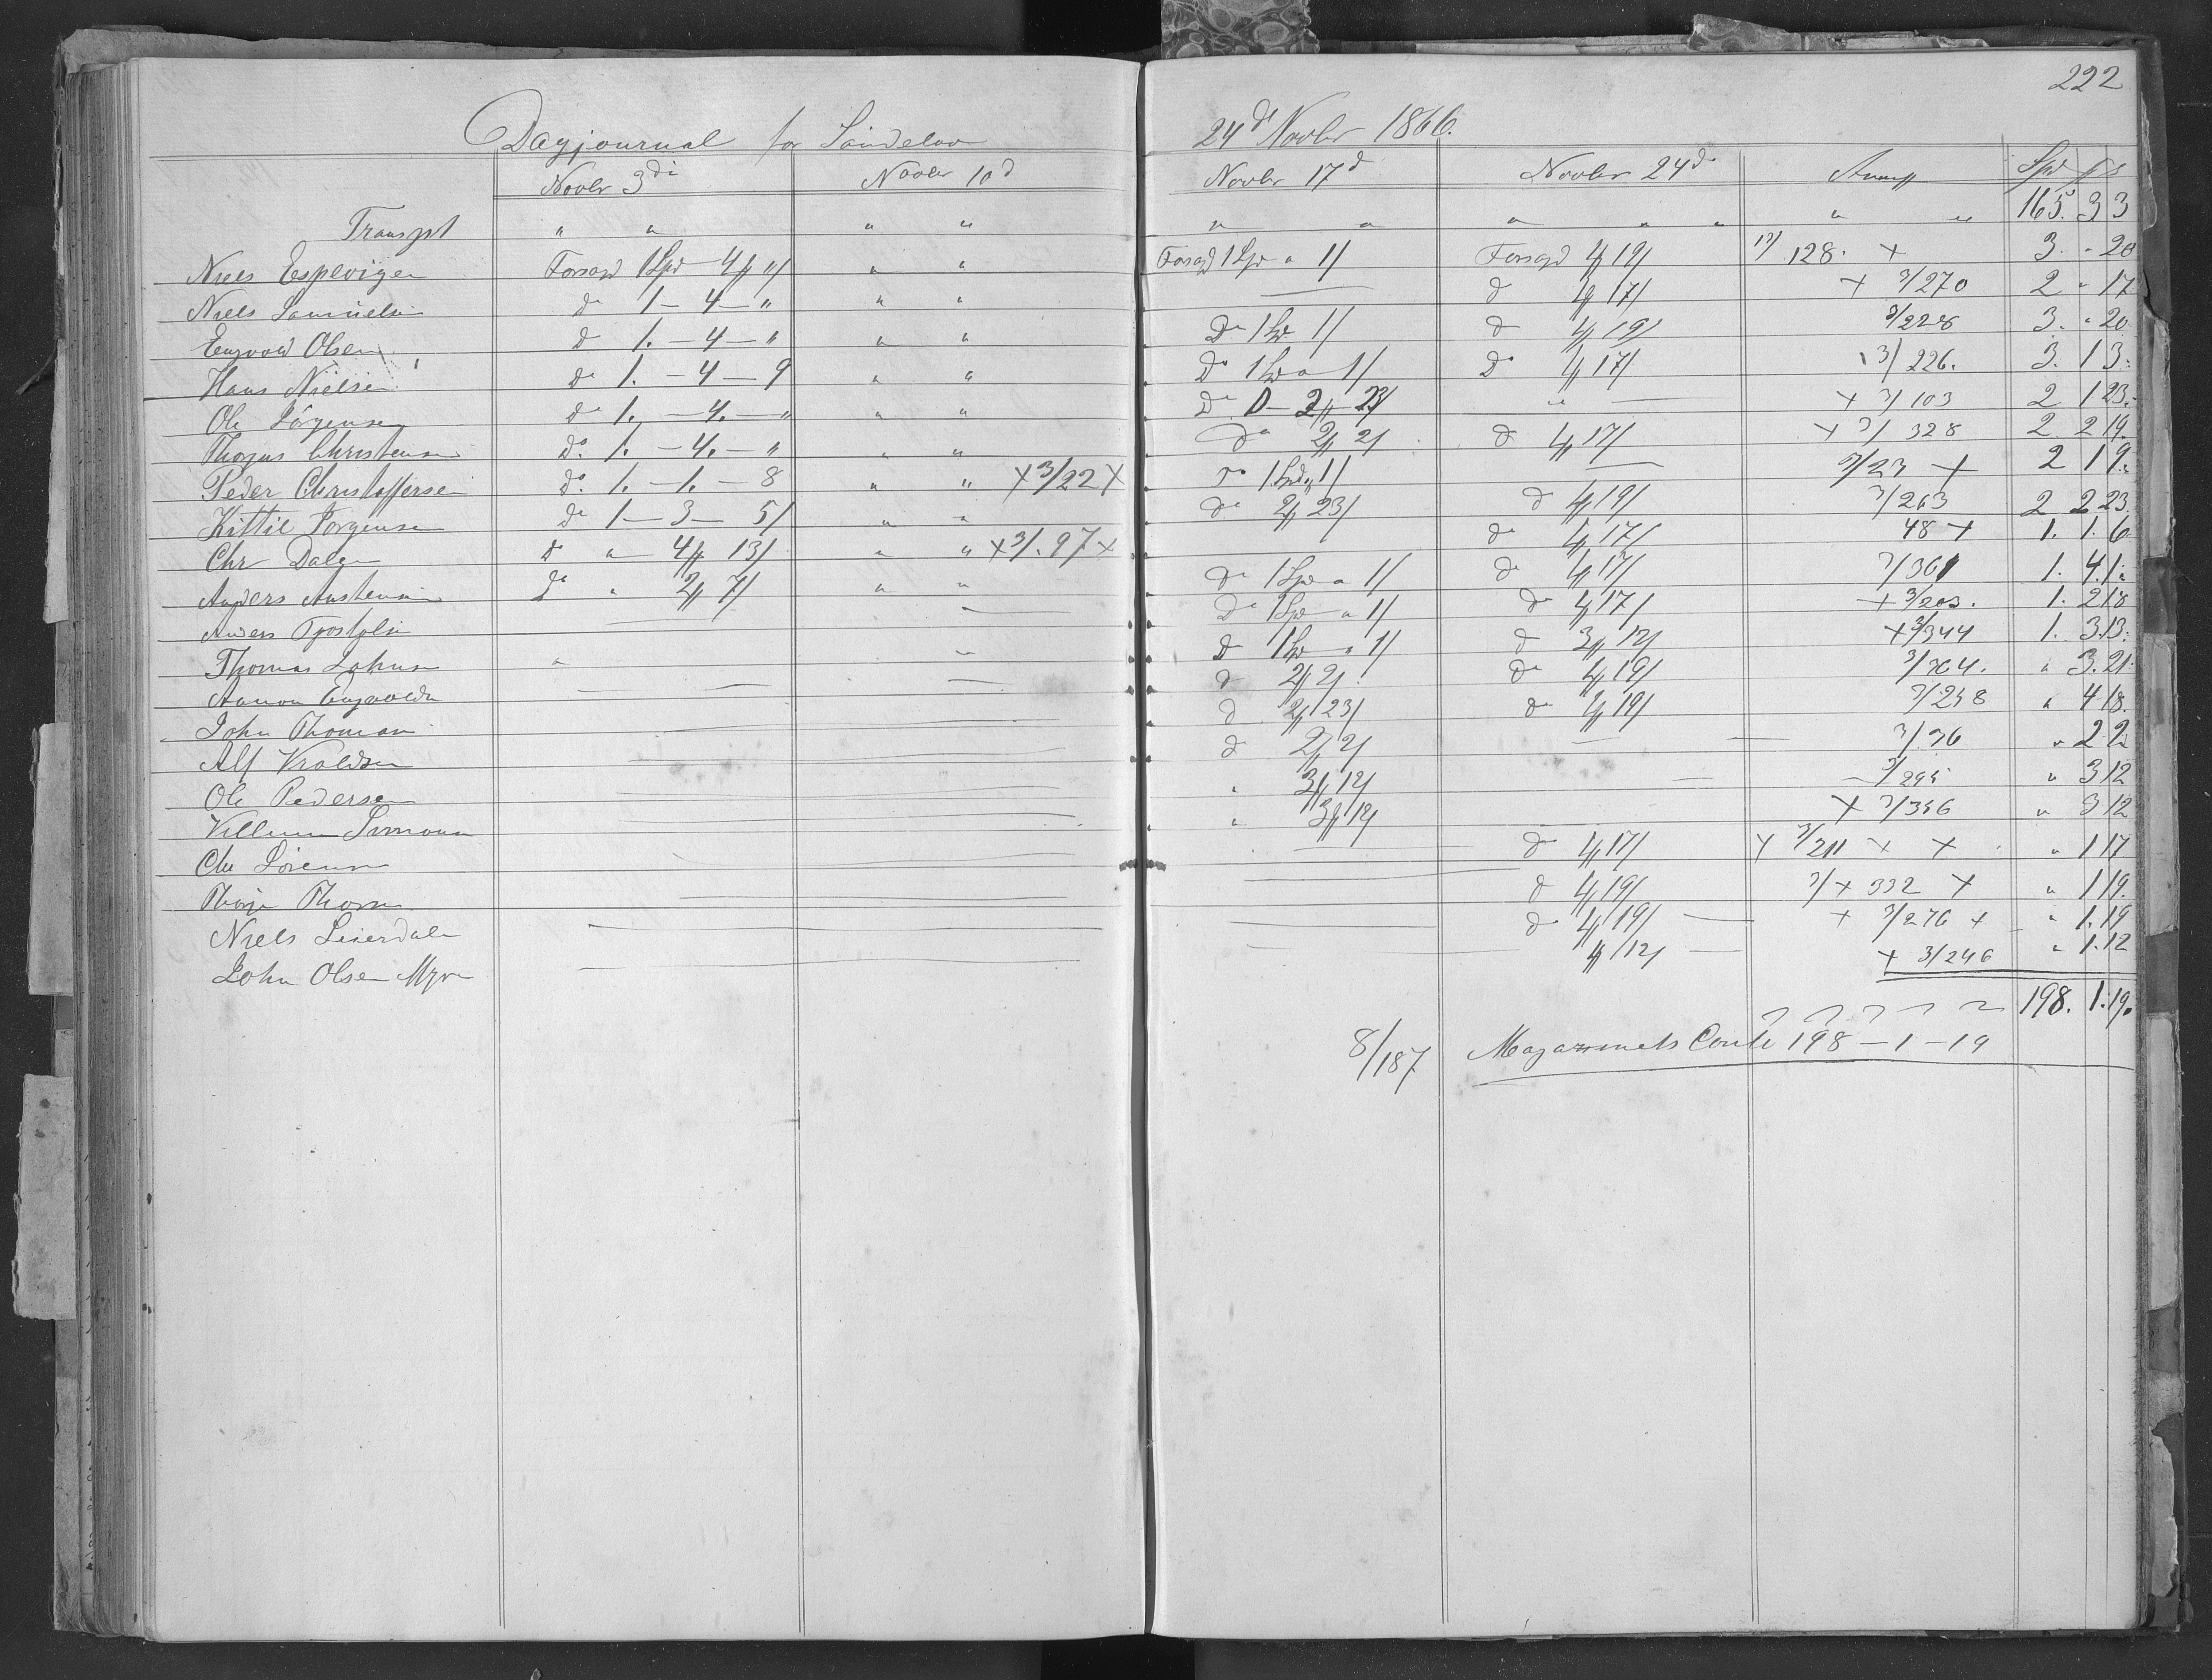 222
Dagjournal for Sandeloo 24d Novbr 1866.
Novbr 3di Novbr 10d Novbr 17d Novbr 24de Anmk Spd
Transpt " " " " " " " " " " " 165. 3 3
Niels Esplevigen Forsgd 1 Spd 4 " / " " Forsgd 1 Spd " 1/ Forsgd 4/19/ 128. + 3. " 20
Niels Samuelsen do 1 — 4 — " " " — do 4/17/ + 3/270 2 " 17
Engvold Olsen do 1. — 4 — " " " Do 1 Spd 1/ do 4/19/ 3/228 3. " 20
Hans Nielsen do 1. — 4 — 9 " " Do 1 Spd " 1/ Do 4/17/ 3/226. 3. 1 3
Ole Jörgensen do 1. — 4. — " " " Do 2 23/ " — + 3/103 2 1 23
Thorjus Christensen do. 1. — 4. — " " " Do 2/ 2/ do 4/17/ + 3/328 2 2 19.
Peder Christoffersen do. 1. — 1. — 8 " " + 3/22 + Do 1 Spd " 1/ — 3/23 + 2 1 9
Kittil Jorgensen do 1 — 3 — 5/ " " Do 2/ 23/ do 4/19/ 3/263 2 2 23
Chr Dale do " — 4 13/ " " + 3/. 97 + do 4/17/ 48 + 1. 1. 6
Anders Austensen do " 2 7/ " " Do 1 Spd " 1/ do 4/17/ 3/361 1. 4. 1
Anders — — Do 1 Spd " 1/ do 4/17/ + 3/203. 1. 2 18
Thomas Johnsen " " Do 1 Spd " 1/ do 3/12/ + 3/344 1. 3. 13
Aanon Engvoldsen — — — do 2/ 2/ do 4/19/ " 3. 21
John Thomasen do 2/ 23/ do 4/19/ 3/258 " 4 18.
Alf do 2/ 2/ — — 3/36 " 2 2
Ole Pedersen " 3/ 12/ — 3/295 " 3 12
Villum Simonsen " 3/ 12/ + 3/356 " 3 12
Chr Sörensen — do 4/17/ + 3/211 + + " 1 17
Thorje Thorsen — do 4/19/ 3/ + 332 + " 1 19.
Niels Leierdal — — do 4/19/ — + 3/276 + " 1. 19
John Olsen Myren — — 4/12/ — + 3/246 " 1. 12
198. 1. 19.
8/187 Magazinets Conto 198 — 1 — 19